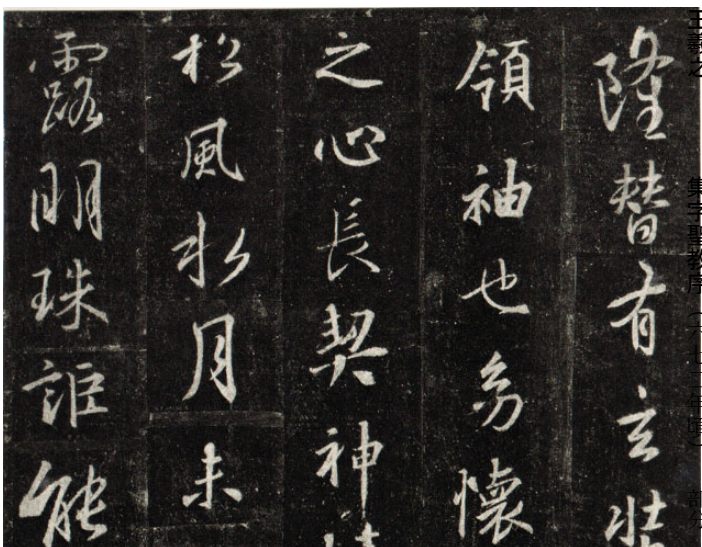 王羲之 集字聖教序(六七二年頃) 部分
隆替有玄奘
領袖也幼懷
之心長契神
松風水月未
露明珠詎能